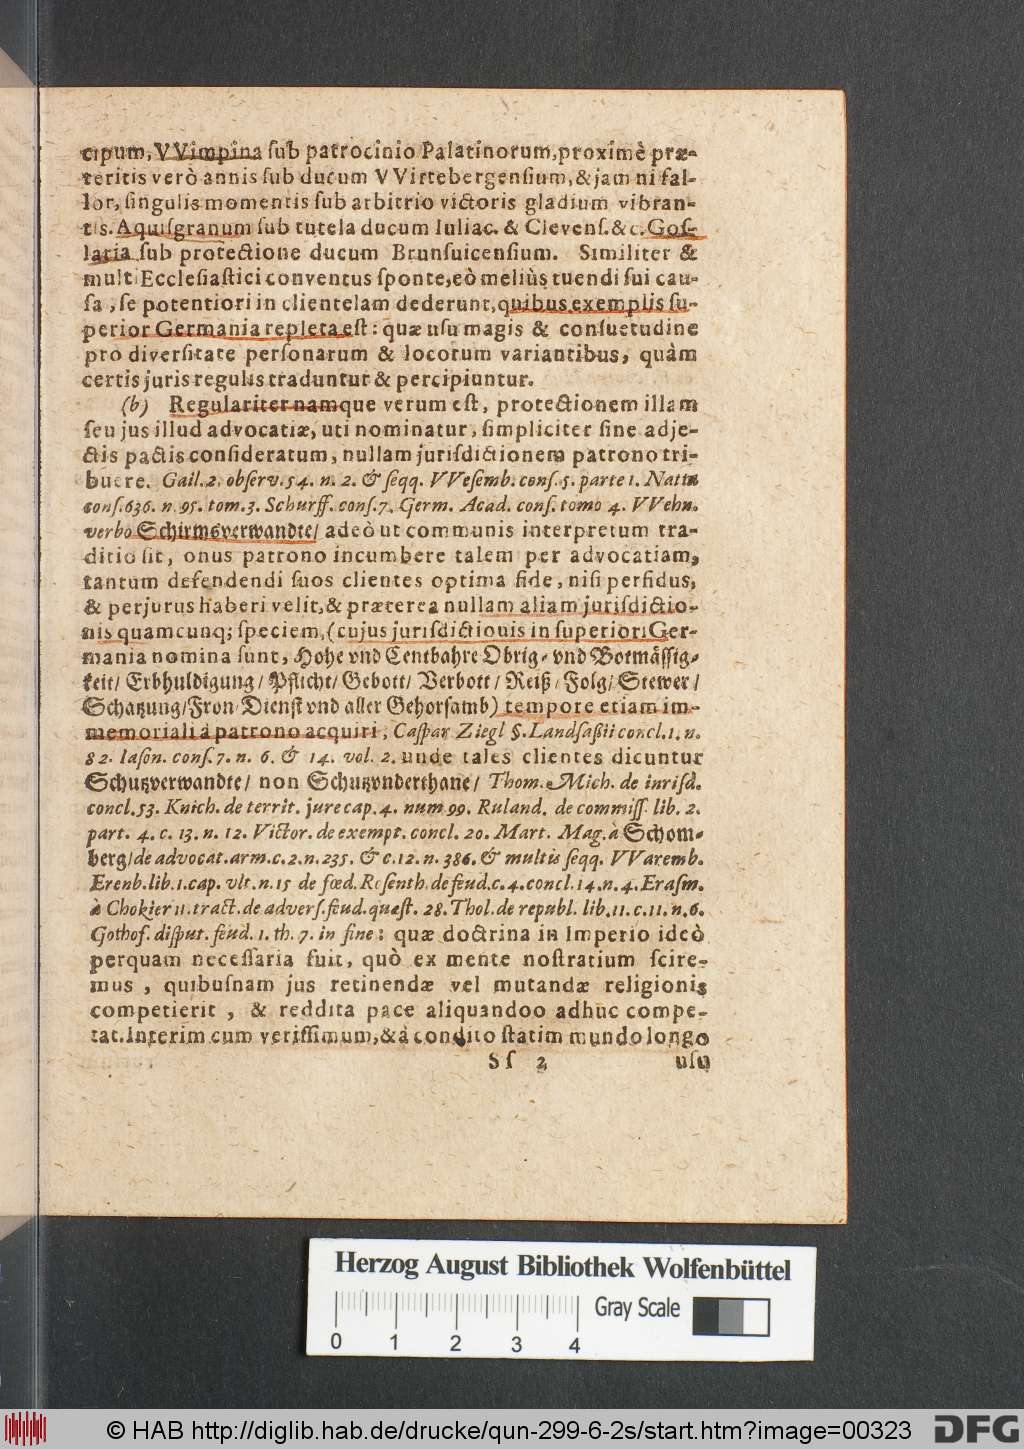 cipum, VVimpina ſub patrocinio Palatinorum, proximè præ-
teritis verò annis ſub ducum VVirtebergenſium, & jam ni fal-
lor, ſingulis momentis ſub arbitrio victoris gladium vibran-
tis. Aquiſgranum ſub tutela ducum Iuliac. & Clevenſ. &c. Goſ-
laria ſub protectione ducum Brunſuicenſium. Similiter &
multi Eccleſiaſtici conventus ſponte, eò meliùs tuendi ſui cau-
ſa, ſe potentiori in clientelam dederunt, quibus exemplis ſu-
perior Germania repleta eſt: quæ uſu magis & conſuetudine
pro diverſitate perſonarum & locorum variantibus, quàm
certis juris regulis traduntur & percipiuntur.
(b) Regulariter namque verum eſt, protectionem illam
ſeu jus illud advocatiæ, uti nominatur, ſimpliciter ſine adje-
ctis pactis conſideratum, nullam juriſdictionem patrono tri-
buere. Gail. 2. obſerv. 54. n. 2. & ſeqq. VVeſemb. conſ. 5. parte 1. Natta
conſ. 636. n. 95. tom. 3. Schurff. conſ. 7. Germ. Acad. conſ. tomo 4. VVehn.
verbo Schirmsverwandte/ adeò ut communis interpretum tra-
ditio ſit, onus patrono incumbere talem per advocatiam,
tantum defendendi ſuos clientes optima fide, niſi perfidus,
& perjurus haberi velit, & præterea nullam aliam jurisdictio-
nis quamcunq; ſpeciem, (cujus juriſdictionis in ſuperiori Ger-
mania nomina ſunt, Hohe vnd Centbahre Obrig- vnd Botmäſſig-
keit/ Erbhuldigung/ Pflicht/ Gebott/ Verbott/ Reiß/ Folg/ Stewer/
Schatzung/ Fron/ Dienſt vnd aller Gehorſamb) tempore etiam im-
memoriali à patrono acquiri, Caſpar Ziegl §. Landſaſſii concl. 1. n.
82. Iaſon. conſ. 7. n. 6. & 14. vol. 2. unde tales clientes dicuntur
Schutzverwandte/ non Schutzvnderthane/ Thom. Mich. de iuriſd.
concl. 53. Knich. de territ. jure cap. 4. num 99. Ruland. de commiſſ. lib. 2.
part. 4. c. 13. n. 12. Victor. de exempt. concl. 20. Mart. Mag. à Schom-
berg/ de advocat. arm. c. 2. n. 235. & c. 12. n. 386. & multis ſeqq. VVaremb.
Erenb. lib. 1. cap. vlt. n. 15 de fœd. Roſenth. de feud. c. 4. concl. 14. n. 4. Eraſm.
à Chokier 11. tract. de adverſ. feud. quæſt. 28. Thol. de republ. lib. 11. c. 11. n. 6.
Gothof. diſput. feud. 1. th. 7. in fine: quæ doctrina in Imperio ideò
perquam neceſſaria fuit, quò ex mente noſtratium ſcire-
mus, quibuſnam jus retinendæ vel mutandæ religionis
competierit, & reddita pace aliquandoo adhuc compe-
tat. Interim cum veriſſimum, & à condito ſtatim mundo longo
Sſ 2 uſu
Herzog August Bibliothek Wolfenbüttel
Gray Scale
0 1 2 3 4
© HAB http://diglib.hab.de/drucke/qun-299-6-2s/start.htm?image=00323
DFG